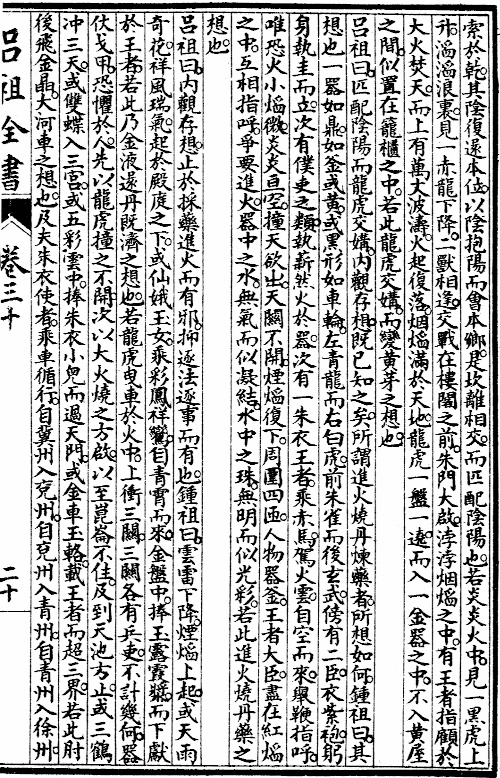 索於乾其陰復還本位以陰抱陽而會本鄉是坎離相交而匹配陰陽也若炎炎火中見一黑虎上
升滔滔浪裏見一赤龍下降二獸相逢交戰在樓閣之前朱門大啟浡浡烟焰之中有王者指顧於
大火焚天而上有萬丈波濤火起復落烟焰滿於天地龍虎一盤一遶而入一金器之中不入黃屋
之間似置在籠櫃之中若此龍虎交媾而變黃芽之想也
呂祖曰匹配陰陽而龍虎交媾內觀存想既已知之矣所謂進火燒丹煉藥者所想如何鍾祖曰其
想也一器如鼎如釜或黃或黑形如車輪左青龍而右白虎前朱雀而後玄武傍有二臣衣紫袍躬
身執圭而立次有僕吏之類執薪然火於器次有一朱衣王者乘赤馬駕火雲自空而來舉鞭指呼
唯恐火小焰微炎炎亘空撞天欲出天關不開煙焰復下周圍四匝人物器釜王者大臣盡在紅焰
之中互相指呼爭要進火器中之水無氣而似凝結水中之珠無明而似光彩若此進火燒丹藥之
想也
呂祖曰內觀存想止於採藥進火而有邪抑逐法逐事而有也鍾祖曰雲雷下降煙焰上起或天雨
奇花祥風瑞氣起於殿庭之下或仙娥玉女乘彩鳳祥鸞自青霄而來金盤中捧玉露霞漿而下獻
於王者若此乃金液還丹既濟之想也若龍虎曳車於火中上衝三關三關各有兵吏不計幾何器
仗戈甲恐懼於人先以龍虎撞之不開次以大火燒之方啟以至崑崙不住及到天池方止或三鶴
沖三天或雙蝶入三宮或五彩雲中捧朱衣小兒而過天門或金車玉輅載王者而超三界若此肘
後飛金晶大河車之想也及夫朱衣使者乘車循行自冀州入兗州自兗州入青州自青州入徐州
呂祖全書
卷三十
二十